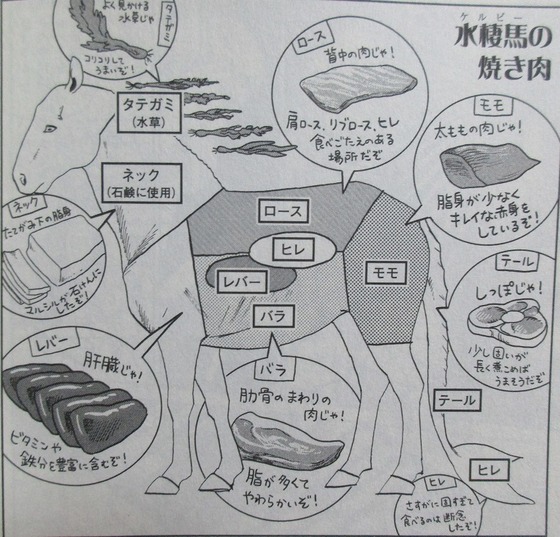 水棲馬の
ケルピー
焼き肉
タテガミ
よく見かける
水草じゃ
コリコリして
うまいぞ!
タテガミ
(水草)
ネック
(石鹸に使用)
ロース
背中の肉じゃ!
肩ロース、リブロース、ヒレ
食べごたえのある
場所だぞ
モモ
太ももの肉じゃ!
脂身が少なく
キレイな赤身を
しているぞ!
ネック
たてがみ下の脂身
マルシルが石けんに
したぞ!
ロース
ヒレ
レバー
バラ
モモ
テール
しっぽじゃ!
少し固いが
長く煮こめば
うまそうだぞ
レバー
肝臓じゃ!
ビタミンや
鉄分を豊富に含むぞ!
バラ
肋骨のまわりの
肉じゃ!
脂が多くて
やわらかいぞ!
テール
ヒレ
ヒレ
さすがに固すぎて
食べるのは断念
したぞ!